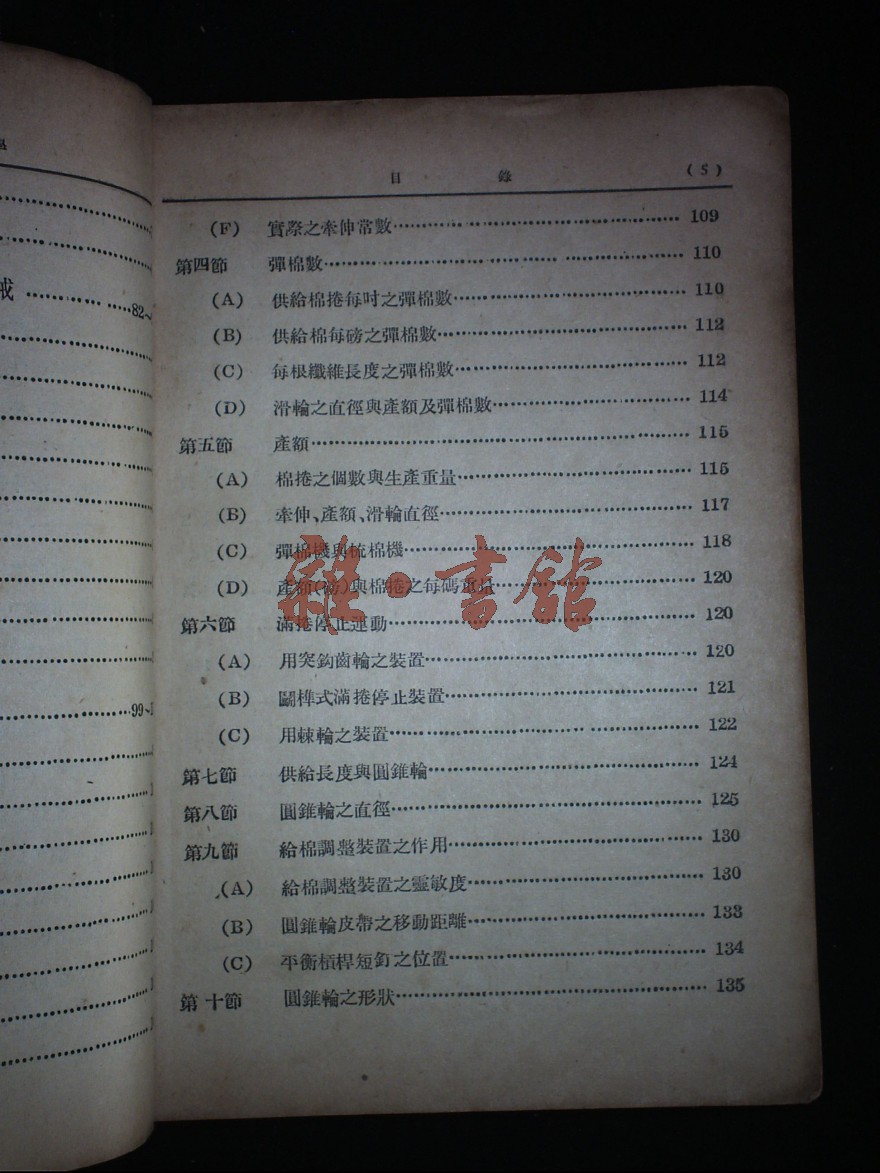 械 …… 82~
99~1
目 錄 (5)
(F) 實際之牽伸常數 …… 109
第四節 彈棉數 …… 110
(A) 供給棉捲每吋之彈棉數 …… 110
(B) 供給棉每磅之彈棉數 …… 112
(C) 每根纖維長度之彈棉數 …… 112
(D) 滑輪之直徑與產額及彈棉數 …… 114
第五節 產額 …… 115
(A) 棉捲之個數與生產重量 …… 115
(B) 牽伸、產額、滑輪直徑 …… 117
(C) 彈棉機與梳棉機 …… 118
(D) 產額(磅)與棉捲之每碼重量 …… 120
雜·書館
第六節 滿捲停止運動 …… 120
(A) 用突鈎齒輪之裝置 …… 120
(B) 闢榫式滿捲停止裝置 …… 121
(C) 用棘輪之裝置 …… 122
第七節 供給長度與圓錐輪 …… 124
第八節 圓錐輪之直徑 …… 125
第九節 給棉調整裝置之作用 …… 130
(A) 給棉調整裝置之靈敏度 …… 130
(B) 圓錐輪皮帶之移動距離 …… 133
(C) 平衡槓桿短釘之位置 …… 134
第十節 圓錐輪之形狀 …… 135